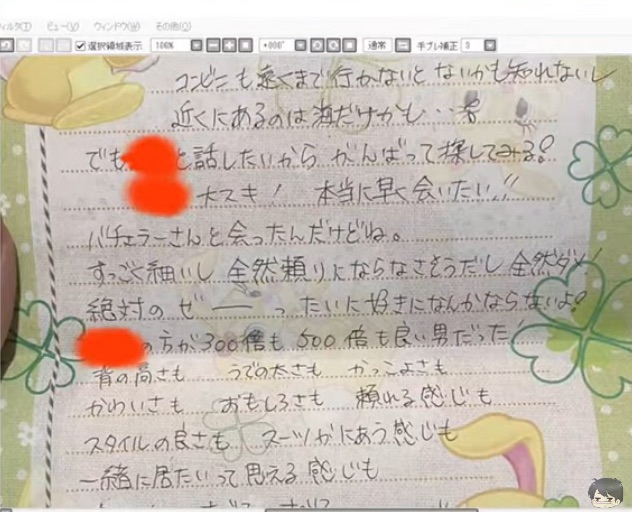 ィルタ(T) ビュー(V) ウィンドウ(W) その他(O)
選択領域表示 100% +000° 通常 手ブレ補正 3
コンビニも遠くまで行かないとないかも知れないし
近くにあるのは海だけかも…
でも と話したいからがんばって探してみる!
大スキ! 本当に早く会いたい!!
バチェラーさんと会ったんだけどね。
すっごく細いし全然頼りにならなさそうだし全然ダメ!
絶対のぜーーったいに好きになんかならないよ!
の方が300倍も500倍も良い男だった!
背の高さも うでの太さも かっこよさも
かわいさも おもしろさも 頼れる感じも
スタイルの良さも スーツがにあう感じも
一緒に居たいって思える感じも